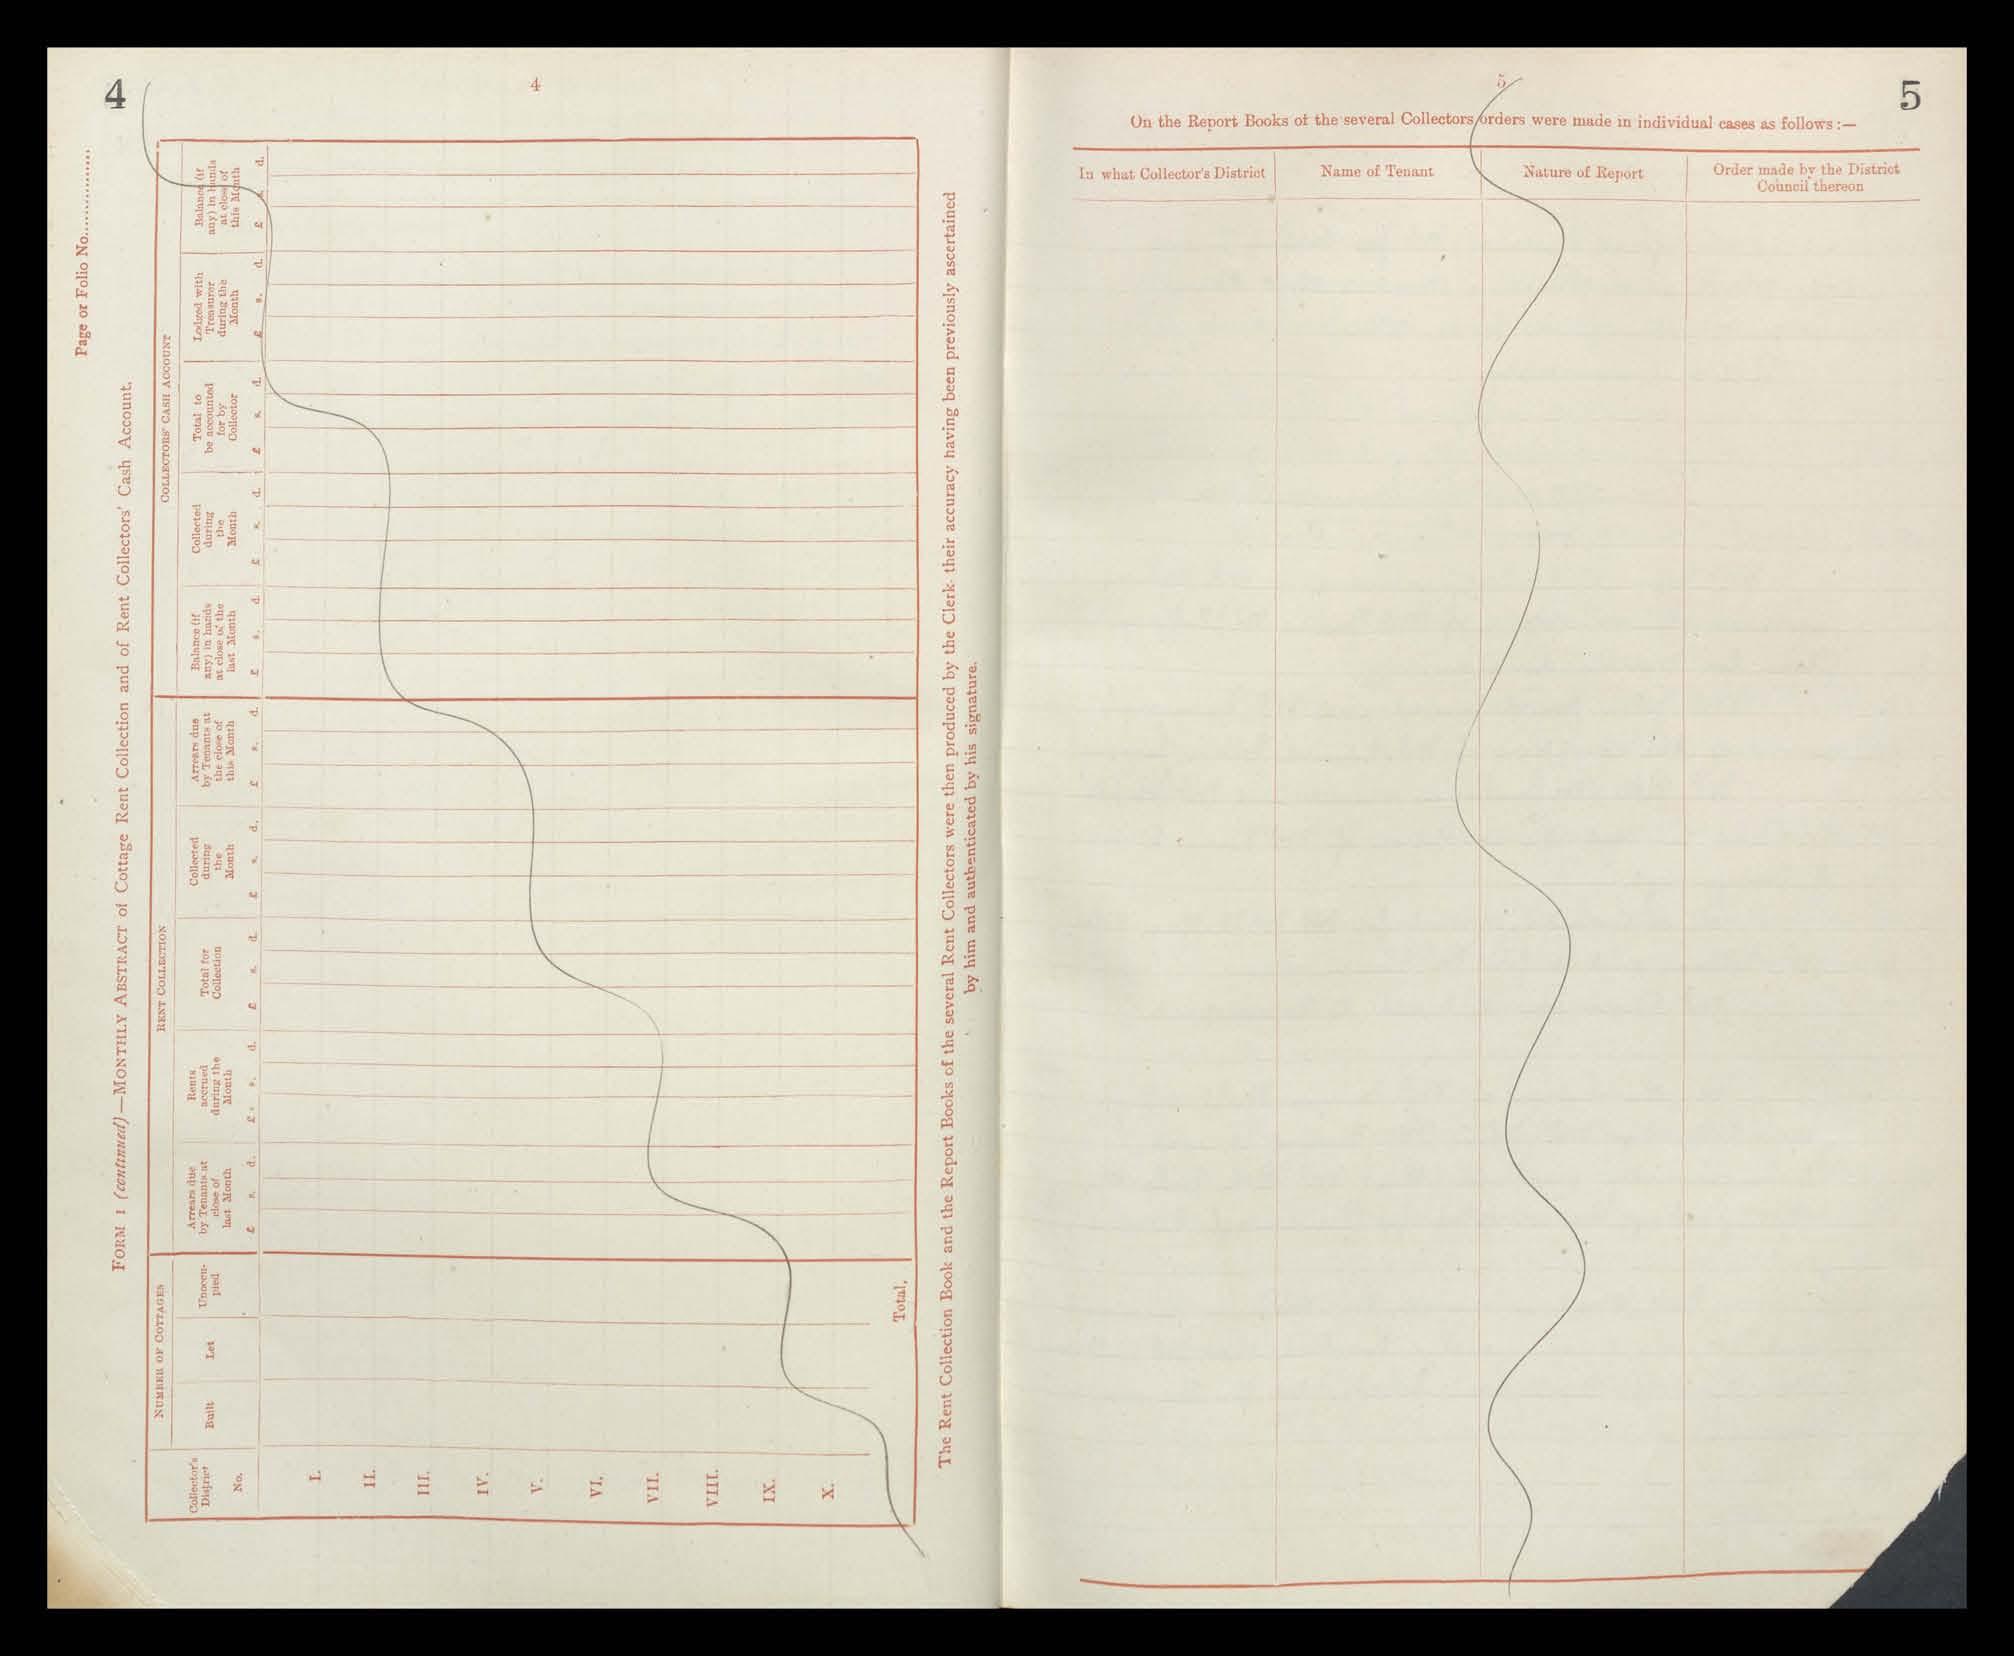 4
4
Page or Folio No..............
FORM 1 (continued)—MONTHLY ABSTRACT of Cottage Rent Collection and of Rent Collectors' Cash Account.
NUMBER OF COTTAGES
RENT COLLECTION
COLLECTORS' CASH ACCOUNT
Collector's
District
No.
Built
Let
Unoccu-
pied
Arrears due
by Tenants at
close of
last Month
£ s. d.
Rents
accrued
during the
Month
£ s. d.
Total for
Collection
£ s. d.
Collected
during
the
Month
£ s. d.
Arrears due
by Tenants at
the close of
this Month
£ s. d.
Balance (if
any) in hands
at close of the
last Month
£ s. d.
Collected
during
the
Month
£ s. d.
Total to
be accounted
for by
Collector
£ s. d.
Lodged with
Treasurer
during the
Month
£ s. d.
Balance (if
any) in hands
at close of
this Month
£ s. d.
I.
II.
III.
IV.
V.
VI.
VII.
VIII.
IX.
X.
Total,
The Rent Collection Book and the Report Books of the several Rent Collectors were then produced by the Clerk- their accuracy having been previously ascertained
by him and authenticated by his signature.
5
5
On the Report Books of the several Collectors orders were made in individual cases as follows:—
In what Collector's District
Name of Tenant
Nature of Report
Order made by the District
Council thereon